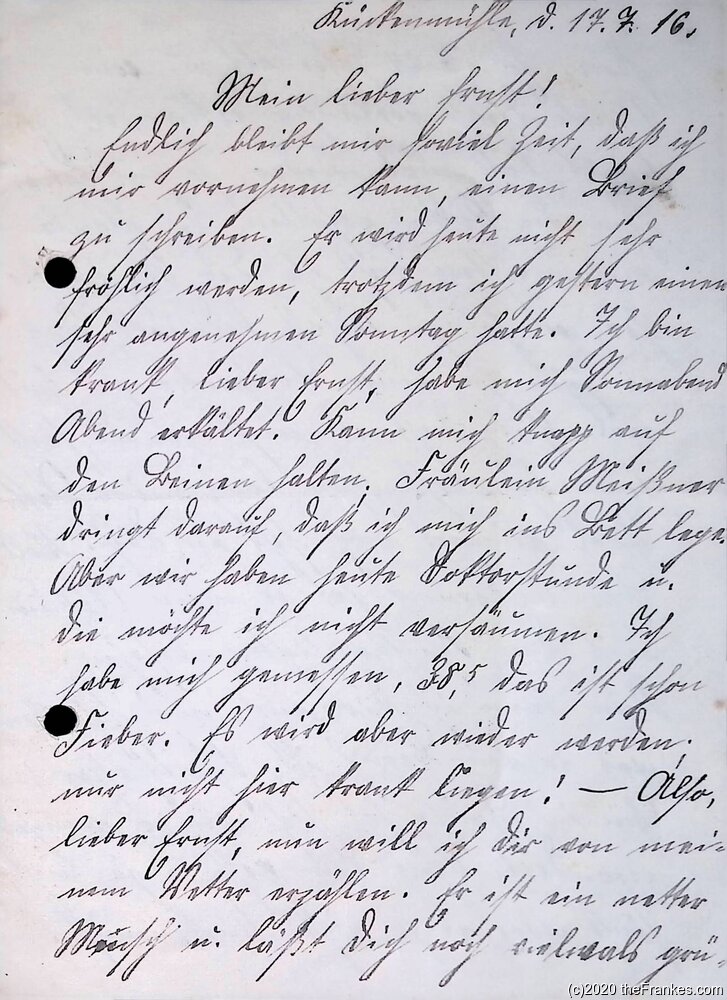 Kückenmühle, d. 17. 7. 16.
Mein lieber Ernst!
Endlich bleibt mir soviel Zeit, daß ich
mir vornehmen kann, einen Brief
zu schreiben. Er wird heute nicht sehr
fröhlich werden, trotzdem ich gestern einen
sehr angenehmen Sonntag hatte. Ich bin
krank, lieber Ernst, habe mich Sonnabend
Abend erkältet. Kann mich knapp auf
den Beinen halten. Fräulein Meißner
dringt darauf, daß ich mich ins Bett lege.
Aber wir haben heute Doktorstunde u.
die möchte ich nicht versäumen. Ich
habe mich gemessen, 38,5 das ist schon
Fieber. Es wird aber wieder werden,
nur nicht hier krank liegen! — Also,
lieber Ernst, nun will ich Dir von mei-
nem Vetter erzählen. Er ist ein netter
Mensch u. läßt Dich noch vielmals grü-
(c)2020 theFrankes.com